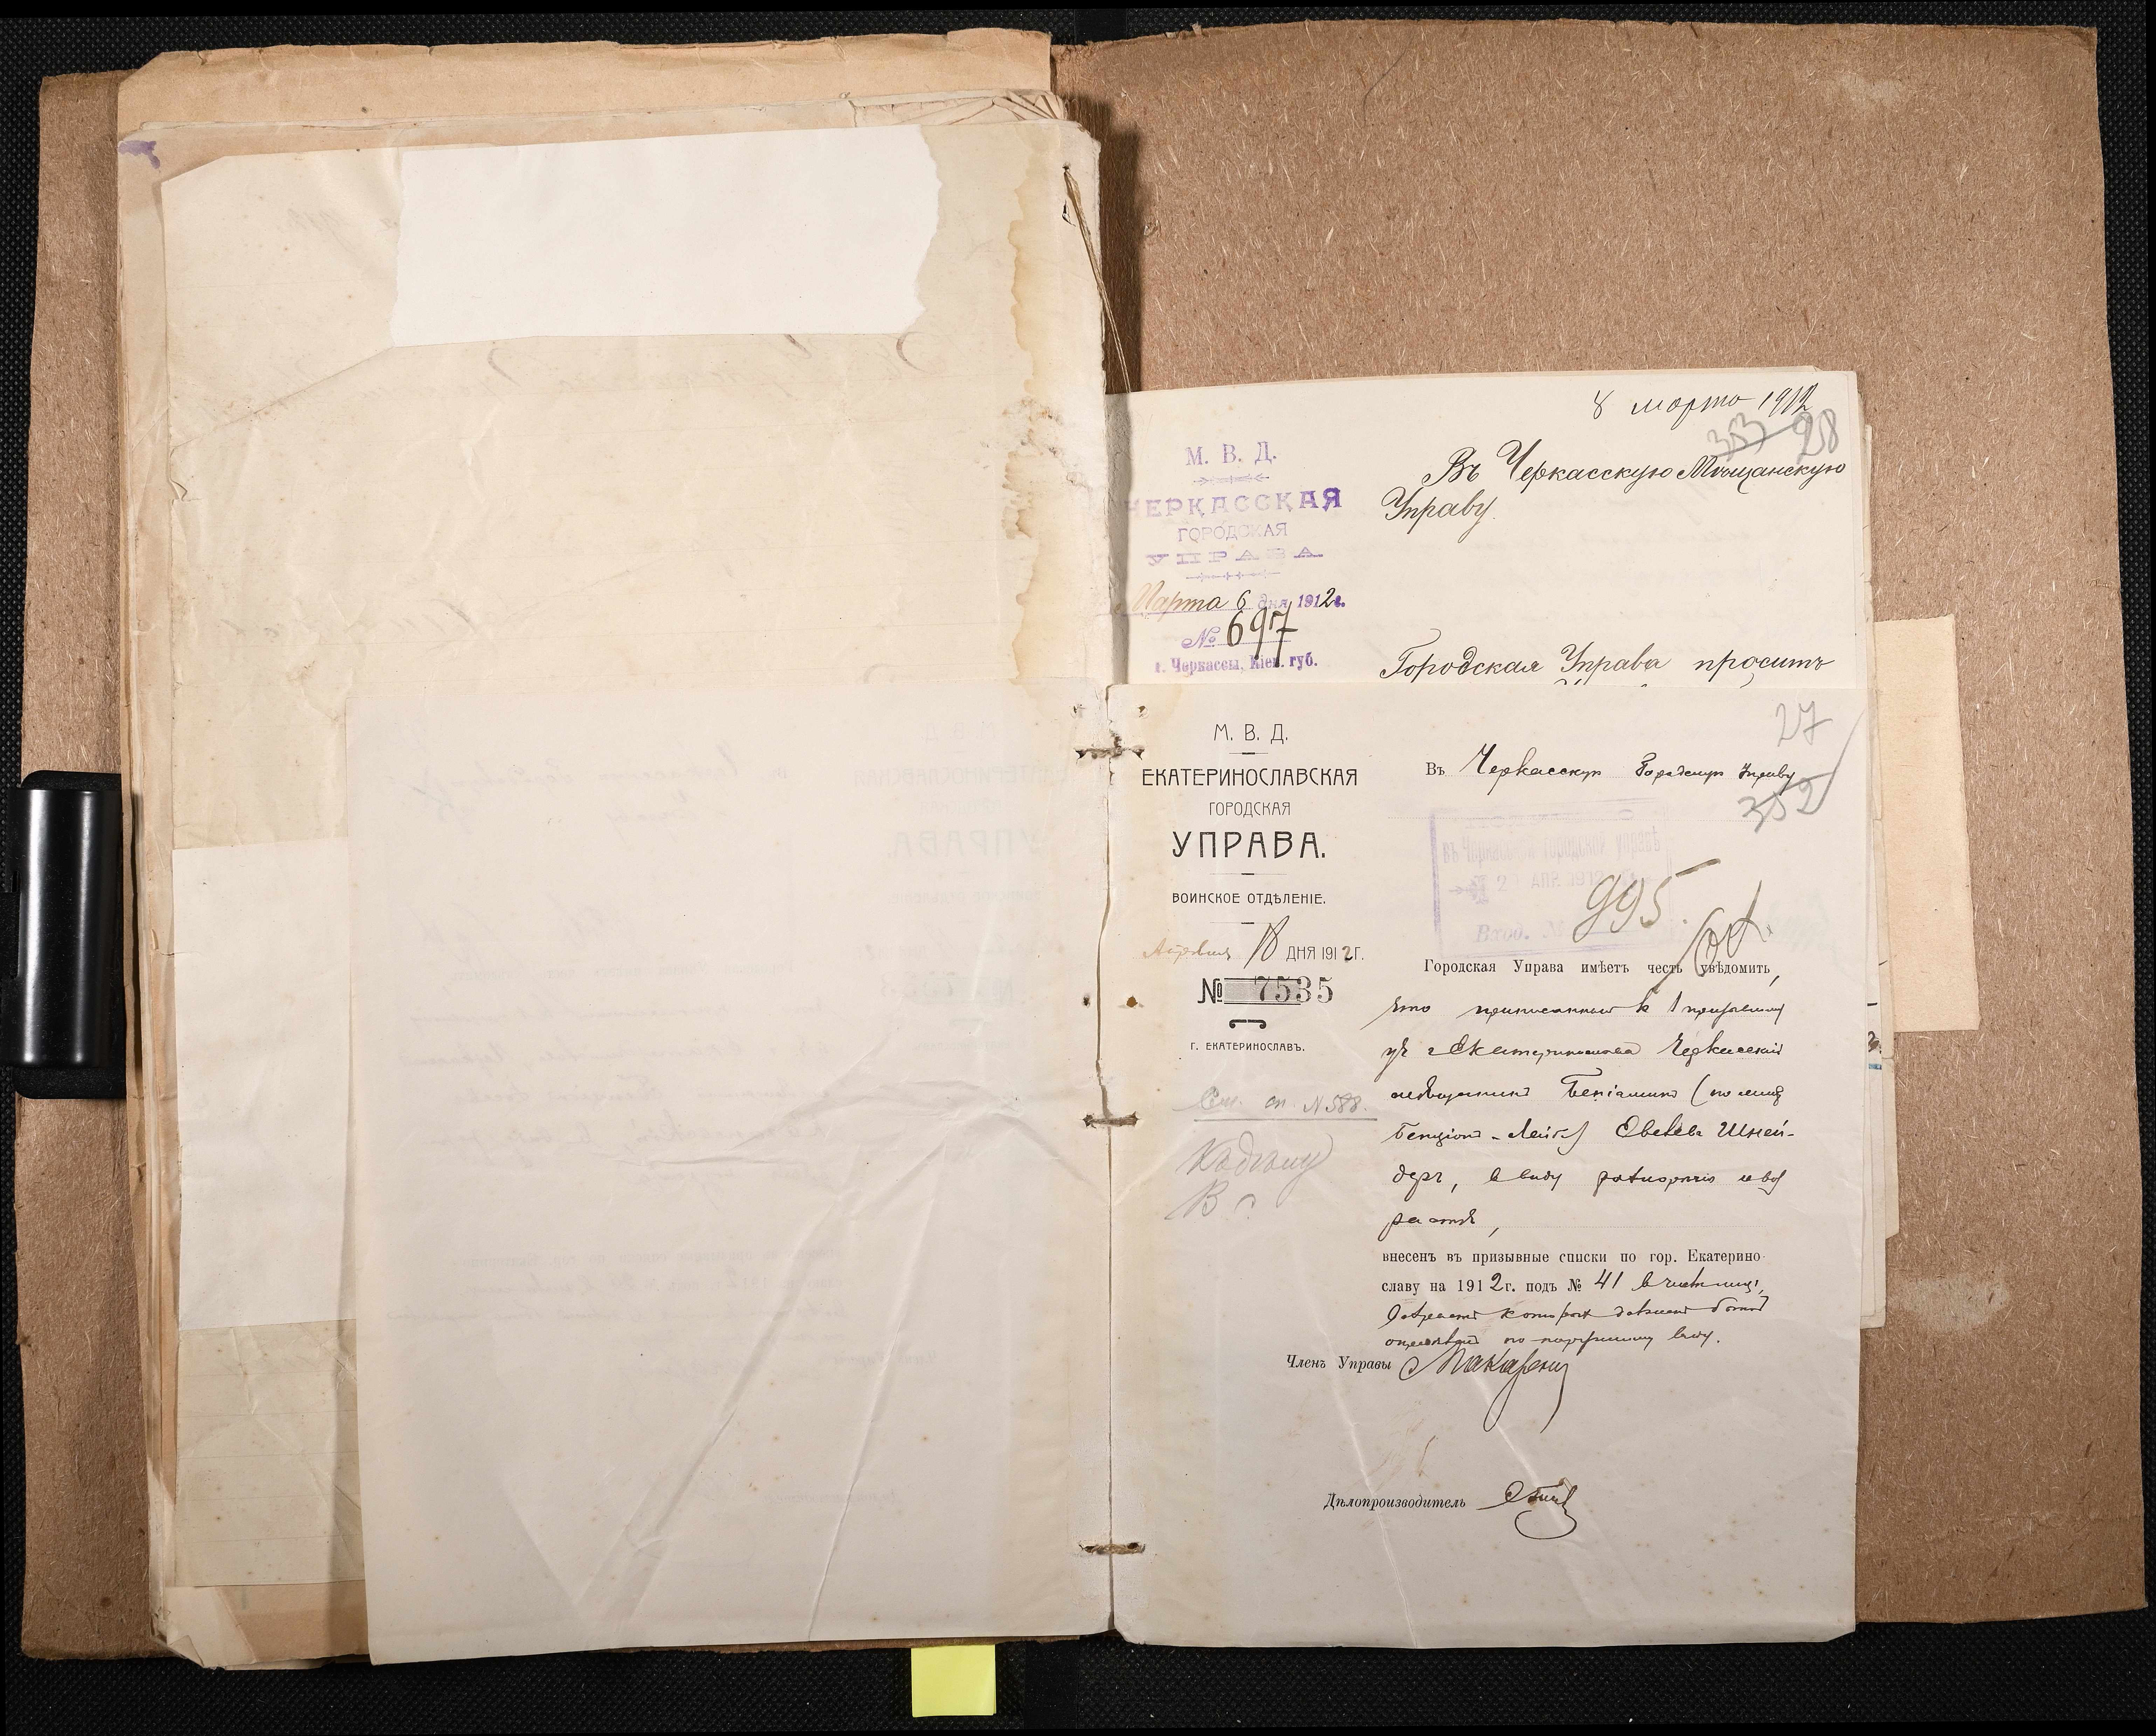 8 марта 1912
353 28
М. В. Д.
ЧЕРКАССКАЯ
ГОРОДСКАЯ
УПРАВА
Марта 6 дня 1912 г.
№ 697
г. Черкассы, Кіев. губ.
Въ Черкасскую Мѣщанскую
Управу.
Городская Управа проситъ
27
352
М. В. Д.
ЕКАТЕРИНОСЛАВСКАЯ
ГОРОДСКАЯ
УПРАВА.
ВОИНСКОЕ ОТДѢЛЕНІЕ.
Апрѣля 18 ДНЯ 1912 Г.
№ 7535
Г. ЕКАТЕРИНОСЛАВЪ.
См. оп. № 588.
Въ Черкасскую Городскую Управу
въ Черкасской городской управѣ
АПР. 1912
Вход. № 995.
Городская Управа имѣетъ честь увѣдомить,
что приписанный к 1 призывному
уч г Екатеринослава Черкасский
мѣщанинъ Беніаминъ (по
Бенціонъ-Лейб) Евелевъ Шней-
деръ, в виду
растѣ,
внесенъ въ призывные списки по гор. Екатерино-
славу на 1912 г. подъ № 41 в числѣ лицъ,
Возрастъ которыхъ долженъ быть
опредѣленъ по наружному виду.
Членъ Управы
Дѣлопроизводитель